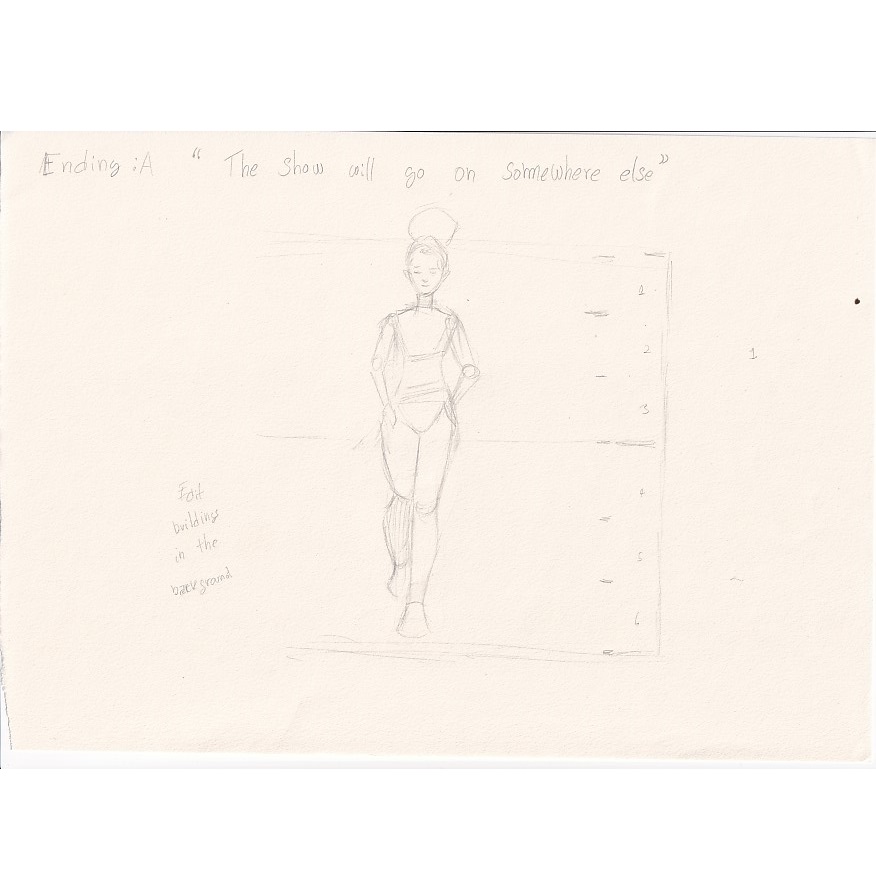 Ending :A “ The show will go on somewhere else”
1
2
1
3
4
5
6
Edit
buildings
in the
background